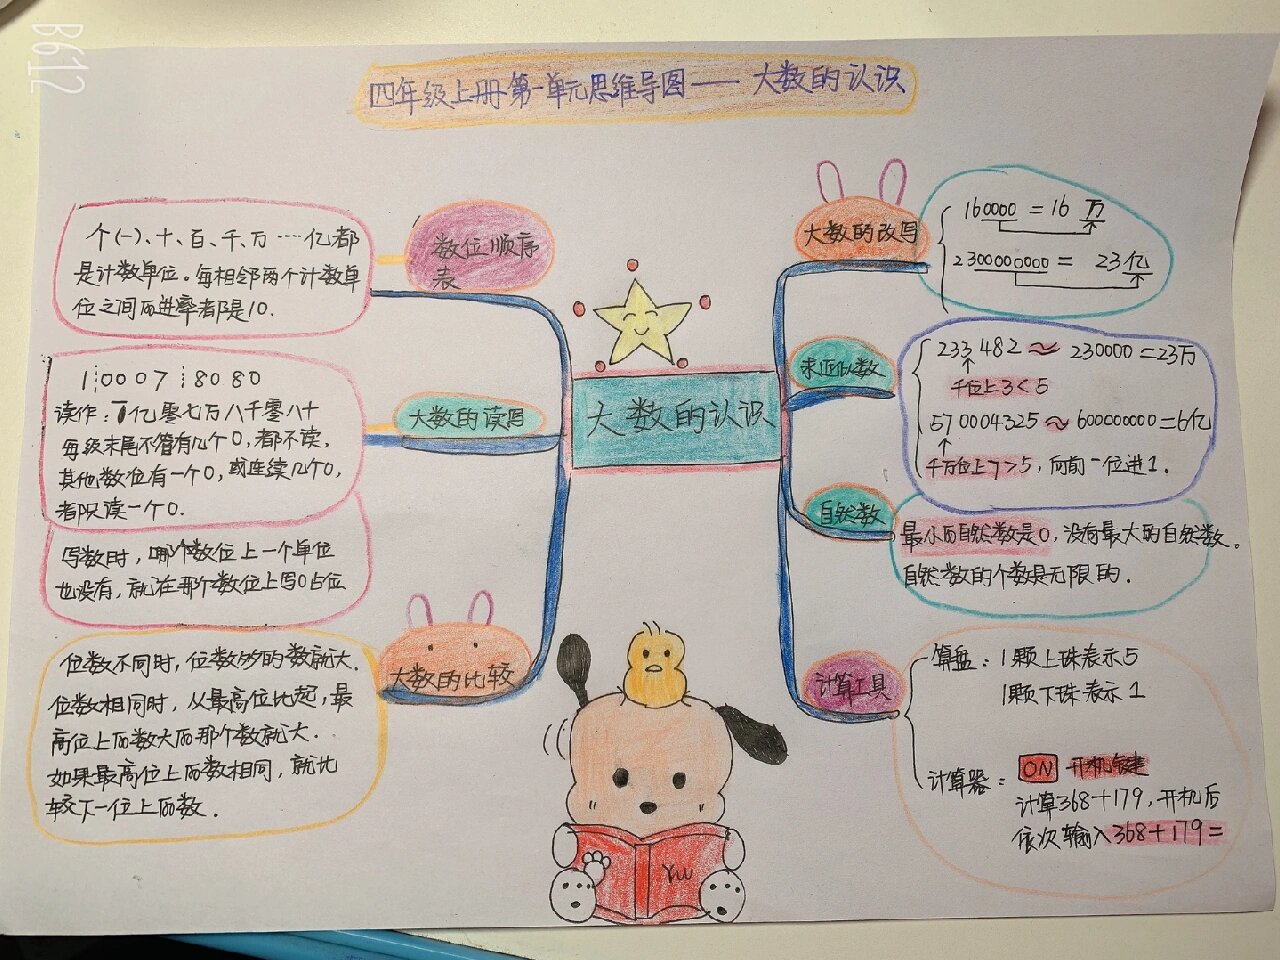 B612
四年级上册第一单元思维导图——大数的认识
数位顺序
表
个(一)、十、百、千、万……亿都
是计数单位。每相邻两个计数单
位之间的进率都是10.
大数的读写
1 0007 8080
读作：一亿零七万八千零八十
每级末尾不管有几个0,都不读,
其他数位有一个0,或连续几个0,
都只读一个0.
写数时,哪个数位上一个单位
也没有,就在那个数位上写0占位
大数的比较
位数不同时,位数多的数就大.
位数相同时,从最高位比起,最
高位上的数大的那个数就大.
如果最高位上的数相同,就比
较下一位上的数.
大数的认识
大数的改写
160000 = 16 万
2300000000 = 23亿
求近似数
233482 ≈ 230000 = 23万
千位上3<5
570004325 ≈ 600000000 = 6亿
千万位上7>5,向前一位进1.
自然数
最小的自然数是0,没有最大的自然数。
自然数的个数是无限的.
计算工具
算盘：1颗上珠表示5
1颗下珠表示1
计算器：ON 开机键
计算368+179,开机后
依次输入368+179=
Yw